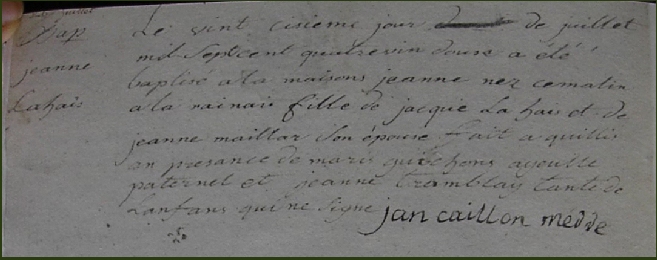 Bap
jeanne
Lahais
Le vint cisieme jour de juillet
mil Sept cent quatrevin douse a été
baptisé a la maisons jeanne nez ce matin
a la rainais fille de jacque La hais et de
jeanne maillar Son épouse fait a quillis
an presance de maris guilchons ayeulle
paternel et jeanne tramblay tante de
Lanfans qui ne Signe jan caillon medde